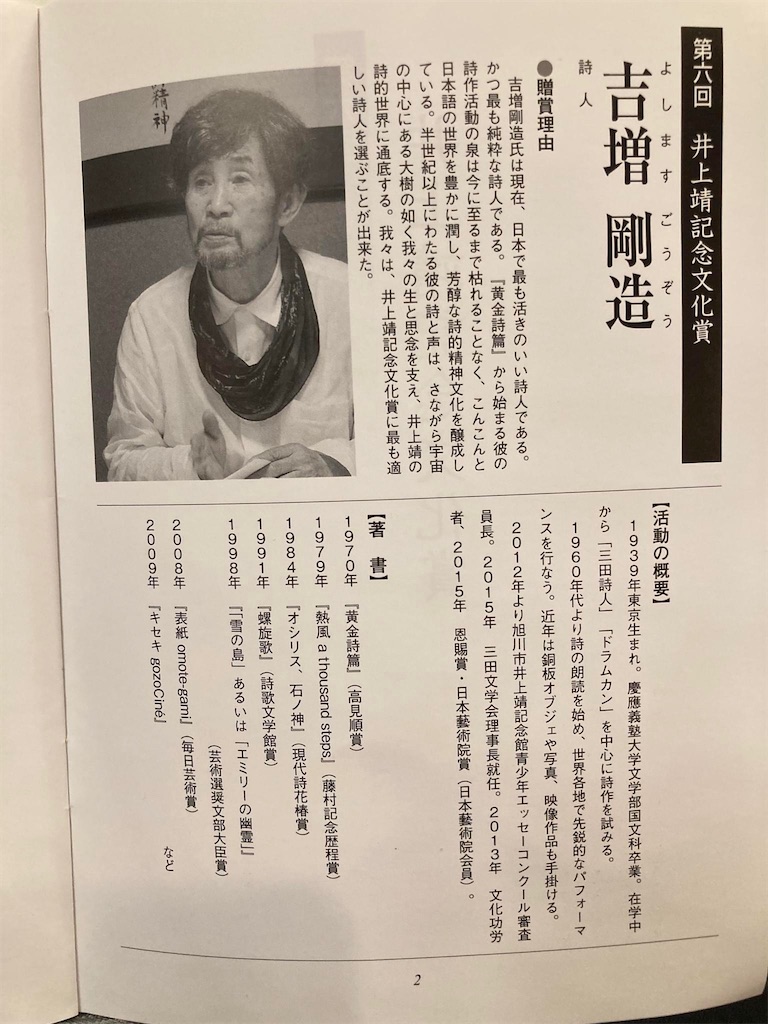 第六回　井上靖記念文化賞
よしますごうぞう
吉増 剛造
詩人
●贈賞理由
　吉増剛造氏は現在、日本で最も活きのいい詩人である。
かつ最も純粋な詩人である。『黄金詩篇』から始まる彼の
詩作活動の泉は今に至るまで枯れることなく、こんこんと
日本語の世界を豊かに潤し、芳醇な詩的精神文化を醸成し
ている。半世紀以上にわたる彼の詩と声は、さながら宇宙
の中心にある大樹の如く我々の生と思念を支え、井上靖の
詩的世界に通底する。我々は、井上靖記念文化賞に最も適
しい詩人を選ぶことが出来た。
精神
【活動の概要】
　1939年東京生まれ。慶應義塾大学文学部国文科卒業。在学中
から「三田詩人」「ドラムカン」を中心に詩作を試みる。
　1960年代より詩の朗読を始め、世界各地で先鋭的なパフォーマ
ンスを行なう。近年は銅板オブジェや写真、映像作品も手掛ける。
　2012年より旭川市井上靖記念館青少年エッセーコンクール審査
員長。2015年　三田文学会理事長就任。2013年　文化功労
者、2015年　恩賜賞・日本藝術院賞（日本藝術院会員）。
【著　書】
1970年『黄金詩篇』（高見順賞）
1979年『熱風 a thousand steps』（藤村記念歴程賞）
1984年『オシリス、石ノ神』（現代詩花椿賞）
1991年『螺旋歌』（詩歌文学館賞）
1998年『「雪の島」あるいは「エミリーの幽霊」』
（芸術選奨文部大臣賞）
2008年『表紙 omote-gami』（毎日芸術賞）
2009年『キセキ gozoCiné』　など
2